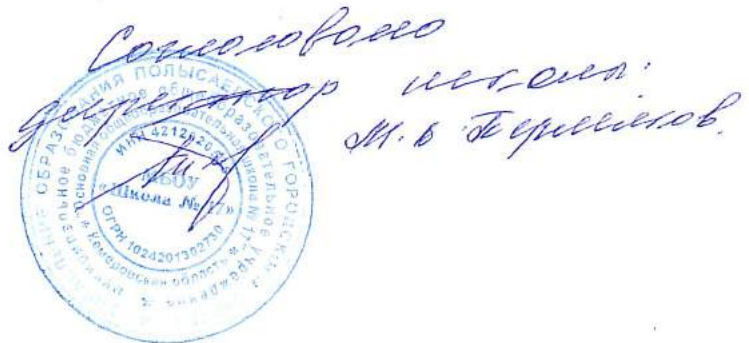 Согласовано
директор школы:
М.В Пермяков.
ОБРАЗОВАНИЯ ПОЛЫСАЕВСКОГО ГОРОДСКОГО
бюджетное общеобразовательное учреждение
"Основная общеобразовательная школа № 17"
Кемеровская область
ИНН 4212020
МБОУ
«Школа № 17»
ОГРН 1024201302750